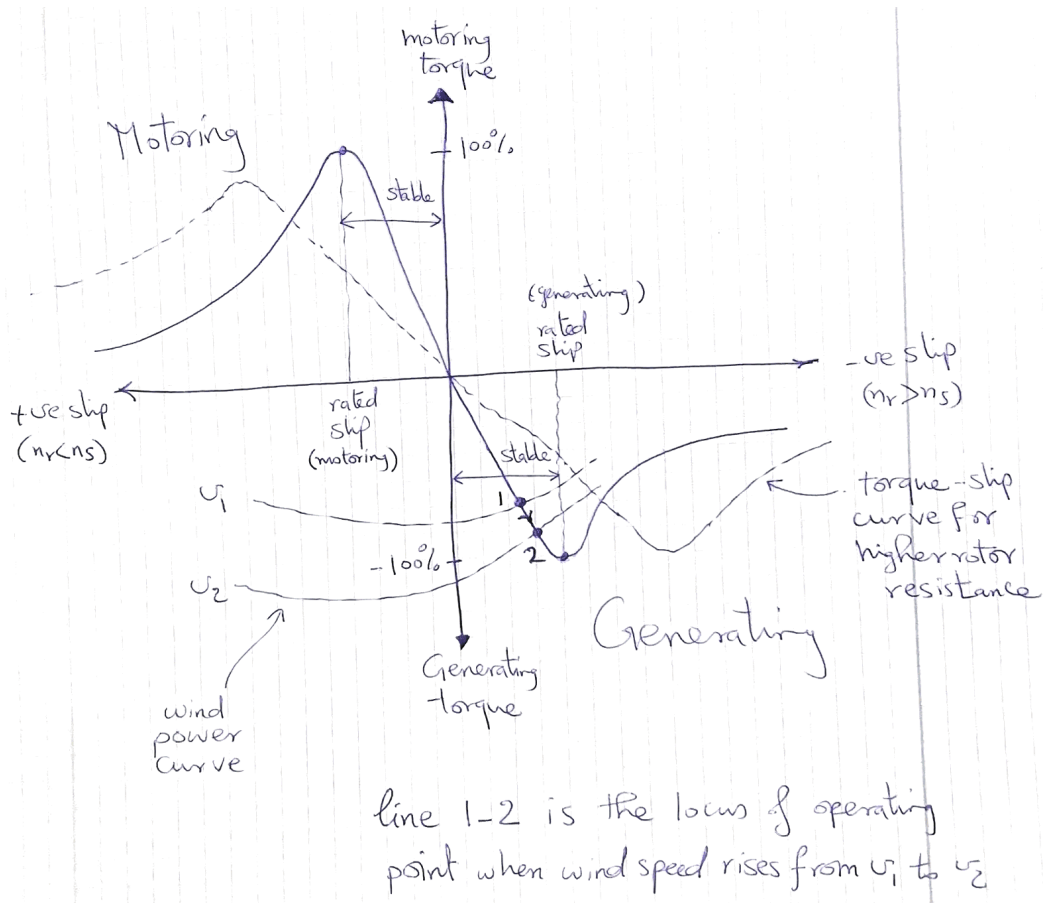 motoring
torque
Motoring
100%
stable
(generating)
rated
slip
-ve slip
(nr>ns)
+ve slip
(nr<ns)
rated
slip
(motoring)
stable
υ1
1
2
-100%
υ2
torque-slip
curve for
higher rotor
resistance
Generating
Generating
torque
wind
power
curve
line 1-2 is the locus of operating
point when wind speed rises from υ1 to υ2